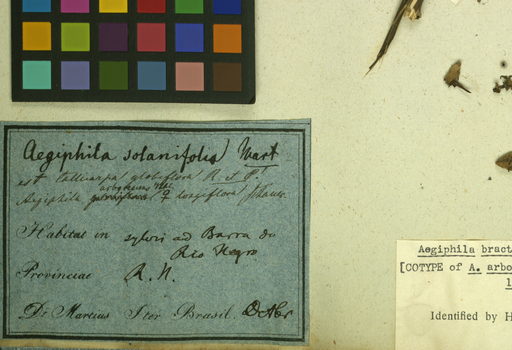 Aegiphila solanifolia Mart
est Callicarpa globiflora R. et P.
arborescens Vahl
Aegiphila parviflora ♀ longiflora Schauer
Habitat in sylvis ad Barra do
Rio Negro
Provinciae R. N.
Dr Martius Iter Brasil. Octbr
Aegiphila bract
[COTYPE of A. arbo
l
Identified by H